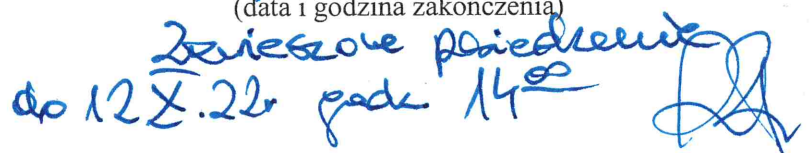 (data i godzina zakończenia)
Zawieszone posiedzenie
do 12 X.22r godz. 14⁰⁰